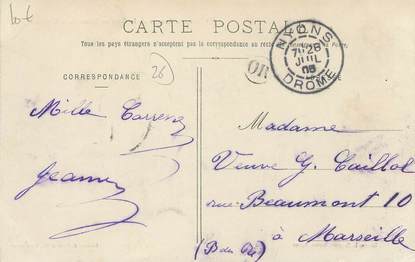 10€
CARTE POSTALE
Tous les pays étrangers n'acceptent pas la correspondance au
CORRESPONDANCE
26
OR
NYONS
7 28
JUIL
DROME
Mille
Jeanne
Madame
Veuve G. Caillol
rue Beaumont 10
à Marseille
(B du R)